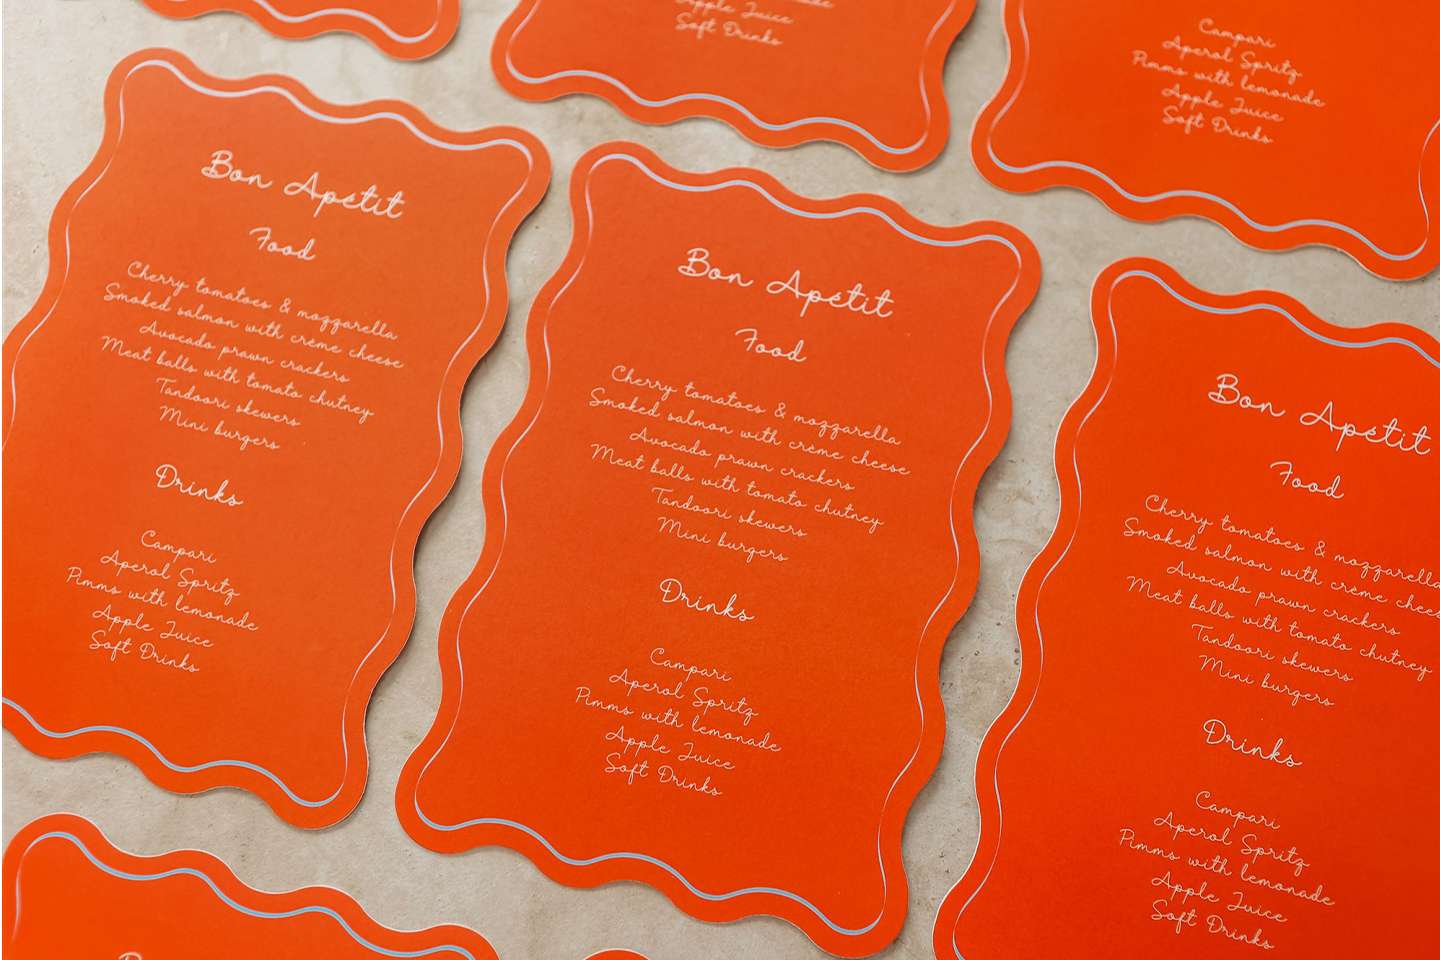 Apple Juice
Soft Drinks
Campari
Aperol Spritz
Pimms with lemonade
Apple Juice
Soft Drinks
Bon Apétit
Food
Cherry tomatoes & mozzarella
Smoked salmon with crème cheese
Avocado prawn crackers
Meat balls with tomato chutney
Tandoori skewers
Mini burgers
Drinks
Campari
Aperol Spritz
Pimms with lemonade
Apple Juice
Soft Drinks
Bon Apétit
Food
Cherry tomatoes & mozzarella
Smoked salmon with crème cheese
Avocado prawn crackers
Meat balls with tomato chutney
Tandoori skewers
Mini burgers
Drinks
Campari
Aperol Spritz
Pimms with lemonade
Apple Juice
Soft Drinks
Bon Apétit
Food
Cherry tomatoes & mozzarella
Smoked salmon with crème
Avocado prawn crackers
Meat balls with tomato chutney
Tandoori skewers
Mini burgers
Drinks
Campari
Aperol Spritz
Pimms with lemonade
Apple Juice
Soft Drinks